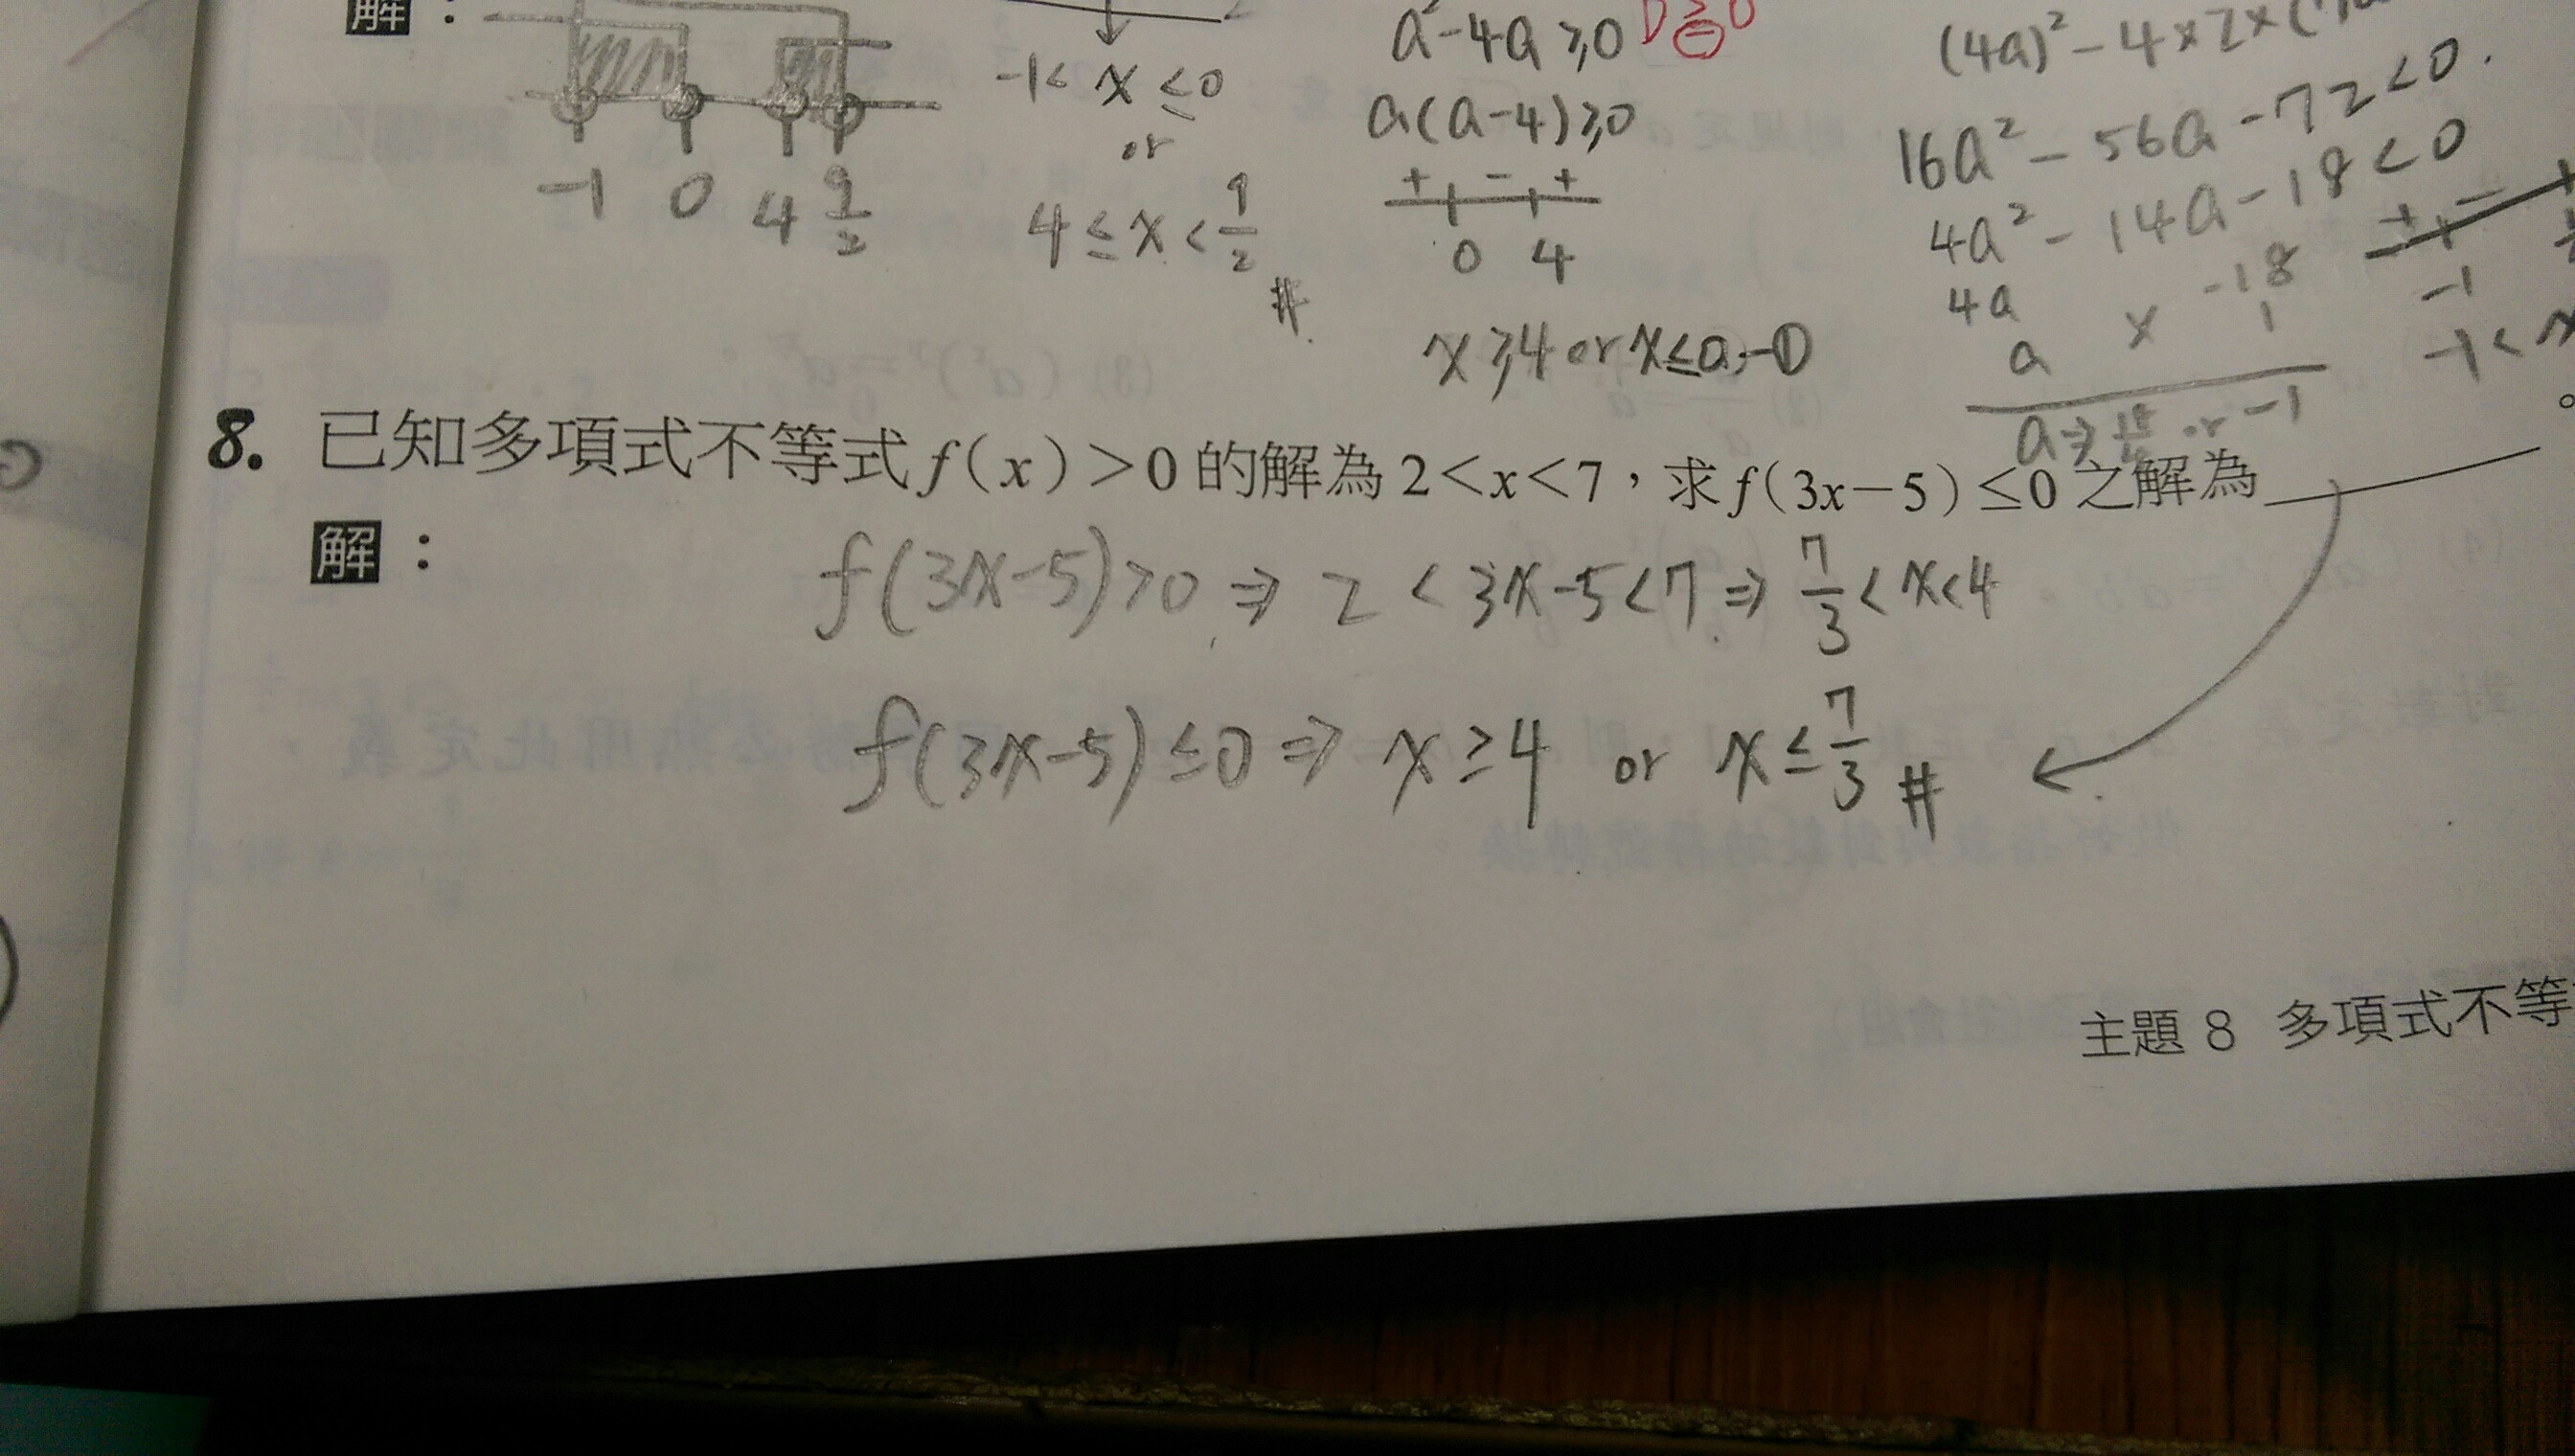 解：
-1 0 4 9/2
-1< x ≤0
or
4 ≤ x < 9/2 #
a²-4a ≥0 D≥0
a(a-4)≥0
+ - +
0 4
x≥4 or x≤
(4a)²-4×2×(
16a²-56a-72<0.
4a²-14a-18<0
4a -18
a × 1
or -1
+ -
-1
-1<
8. 已知多項式不等式 f(x)>0 的解為 2<x<7，求 f(3x-5)≤0 之解為 。
解：
f(3x-5)>0 ⇒ 2 < 3x-5<7 ⇒ 7/3 < x<4
f(3x-5)≤0 ⇒ x ≥4 or x ≤ 7/3 #
主題 8 多項式不等